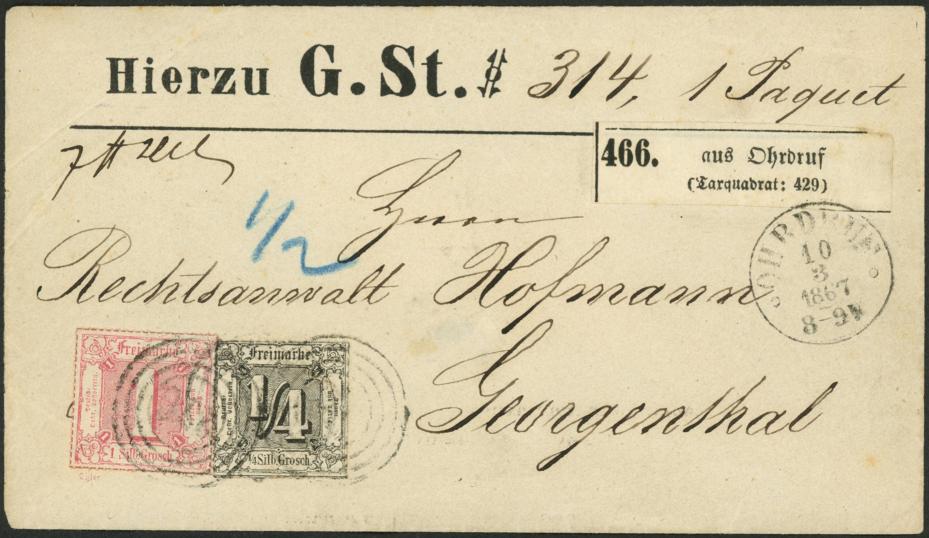 Hierzu G. St. # 314, 1 Paquet
466. aus Ohrdruf
(Taxquadrat: 429)
Herrn
1/2
Rechtsanwalt Hofmann
Georgenthal
OHRDRUF
10
3
1867
8-9V
Freimarke
1
1 Silb. Grosch.
Freimarke
1/4
1/4 Silb. Grosch.